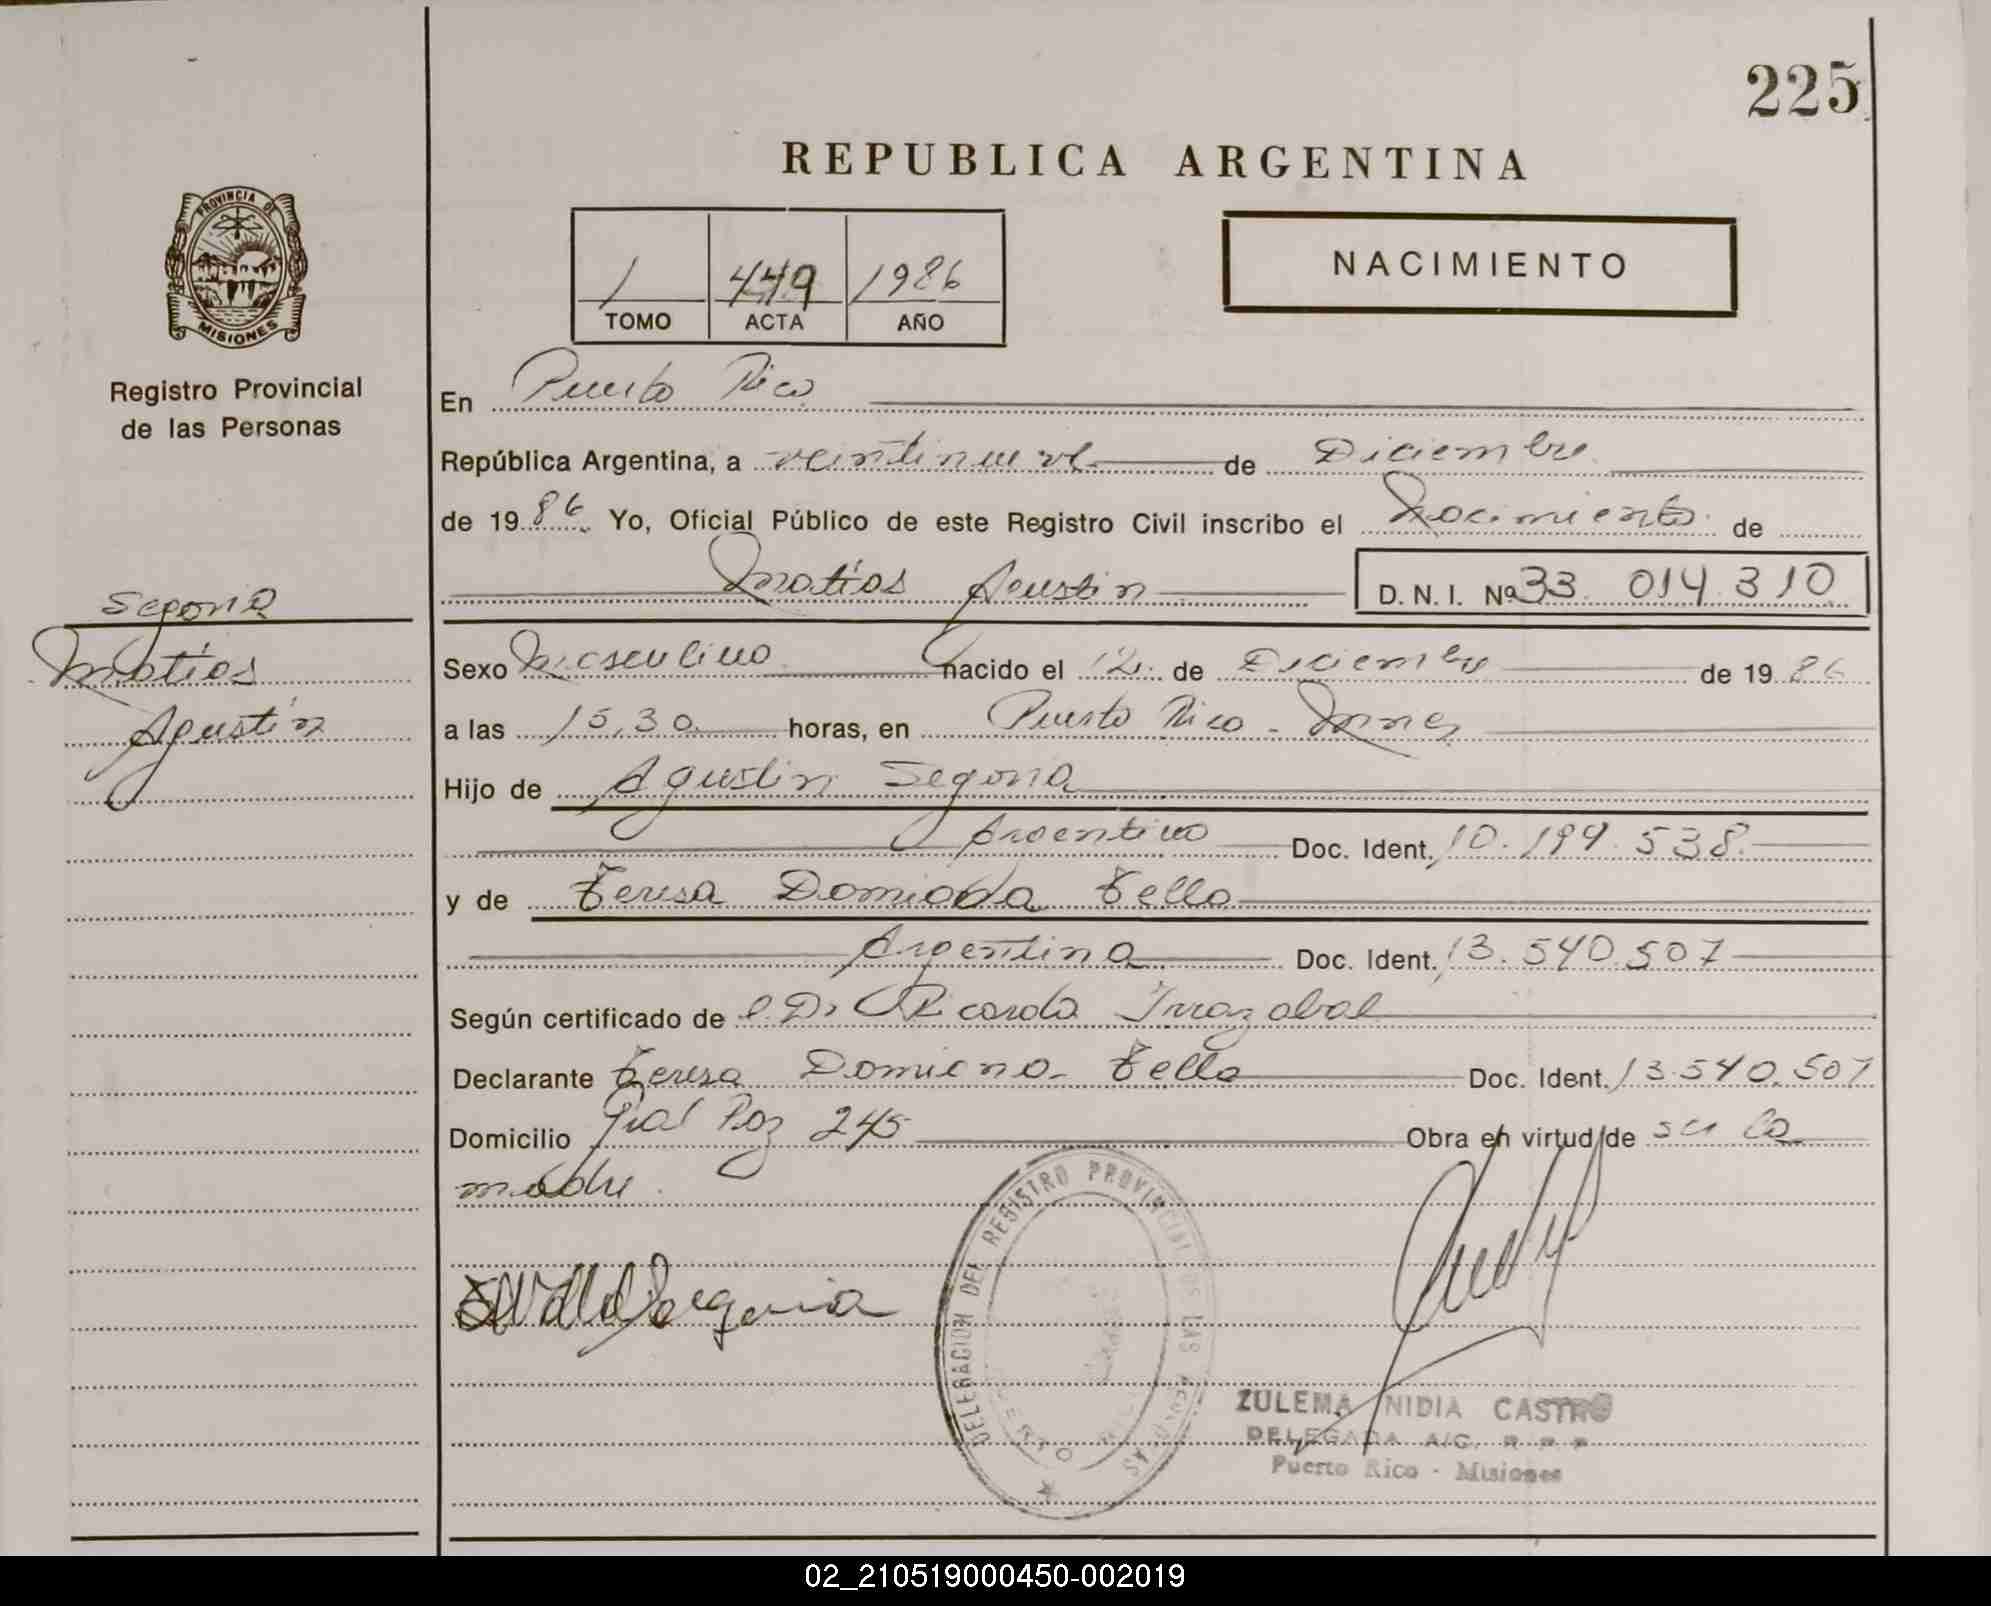 225
REPUBLICA ARGENTINA
PROVINCIA DE
MISIONES
1 449 1986
TOMO ACTA AÑO
NACIMIENTO
Registro Provincial
de las Personas
En Puerto Rico
República Argentina, a veintinueve de Diciembre
de 1986 Yo, Oficial Público de este Registro Civil inscribo el Nacimiento de
Matías Agustin D. N. I. Nº 33.014.310
Segovia
Matías
Agustín
Sexo Masculino nacido el 12 de Diciembre de 1986
a las 15,30 horas, en Puerto Rico - Mnes
Hijo de Agustin Segovia
Argentino Doc. Ident. 10.199.538
y de Teresa Tello
Argentina Doc. Ident. 13.540.507
Según certificado de Dr Ricardo Irrazabal
Declarante Teresa Tello Doc. Ident. 13.540.507
Domicilio Gral Paz 245 Obra en virtud de su la
madre.
Segovia
DELEGACION DEL REGISTRO PROVINCIAL DE LAS
ZULEMA NIDIA CASTRO
DELEGADA A/C. R. P. P.
Puerto Rico - Misiones
02_210519000450-002019